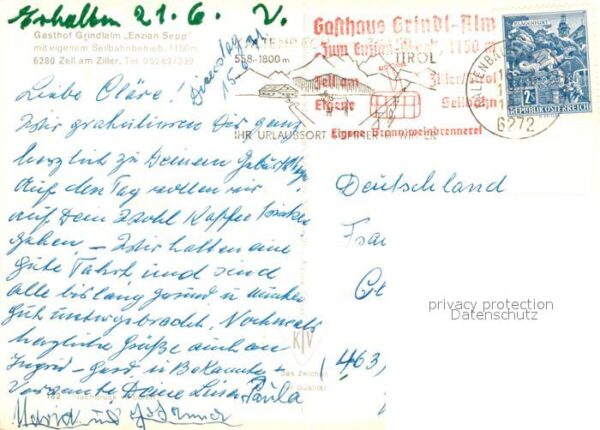 Erhalten 21.6. V.
Gasthof Grindlalm „Enzian Sepp"
mit eigenem Seilbahnbetrieb, 1150 m
6280 Zell am Ziller, Tel. 05282/339
Dienstag
Gasthaus Grindl-Alm
"Zum Enzian Sepp", 1150 m
Zell am Ziller, Tirol
Eigene Seilbahn
Eigene Branntweinbrennerei
558-1800 m
TIROL
IHR URLAUBSORT SOMMER WINTER
6272
KLAGENFURT
2S
REPUBLIK ÖSTERREICH
Liebe Cläre!
Wir gratulieren Dir ganz
herzlich zu Deinem Geburtstage
Auf den Tag wollen wir
auf Dein Wohl Kaffee trinken
gehen. – Wir hatten eine
gute Fahrt und sind
alle bislang gesund u. munter
gut untergebracht. Nochmals
herzliche Grüße auch an
Ingrid - Gerd, u. Bekannte +
Verwandte, Deine Paula
Maria und
Deutschland
Frau
privacy protection
Datenschutz
463,
KV
Das Zeichen
Qualität